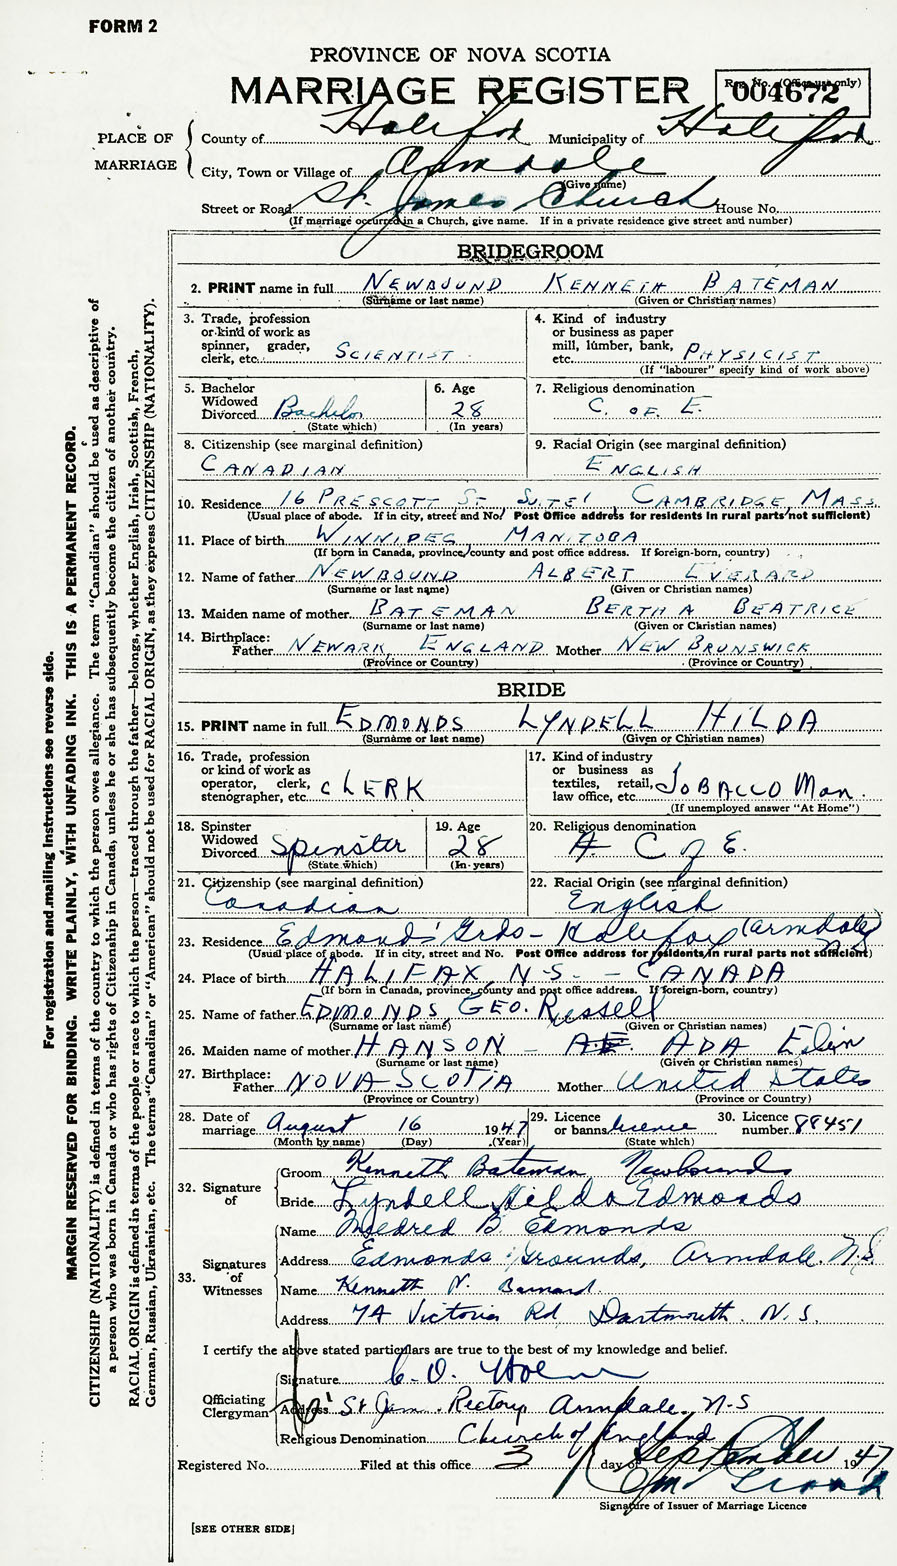 FORM 2
PROVINCE OF NOVA SCOTIA
MARRIAGE REGISTER
Reg. No. (Office use only)
004672
PLACE OF MARRIAGE
County of Halifax Municipality of Halifax
City, Town or Village of Armdale
(Give name)
Street or Road St. James Church House No.
(If marriage occurred in a Church, give name. If in a private residence give street and number)
BRIDEGROOM
2. PRINT name in full NEWBOUND KENNETH BATEMAN
(Surname or last name) (Given or Christian names)
3. Trade, profession or kind of work as spinner, grader, clerk, etc. SCIENTIST
4. Kind of industry or business as paper mill, lumber, bank, etc. PHYSICIST
(If "labourer" specify kind of work above)
5. Bachelor Widowed Divorced Bachelor
(State which)
6. Age 28
(In years)
7. Religious denomination C. OF E.
8. Citizenship (see marginal definition) CANADIAN
9. Racial Origin (see marginal definition) ENGLISH
10. Residence 16 PRESCOTT ST. SUITE 1 CAMBRIDGE, MASS.
(Usual place of abode. If in city, street and No. Post Office address for residents in rural parts not sufficient)
11. Place of birth WINNIPEG, MANITOBA
(If born in Canada, province, county and post office address. If foreign-born, country)
12. Name of father NEWBOUND ALBERT EVERARD
(Surname or last name) (Given or Christian names)
13. Maiden name of mother BATEMAN BERTHA BEATRICE
(Surname or last name) (Given or Christian names)
14. Birthplace: Father NEWARK, ENGLAND Mother NEW BRUNSWICK
(Province or Country) (Province or Country)
BRIDE
15. PRINT name in full EDMONDS LYNDELL HILDA
(Surname or last name) (Given or Christian names)
16. Trade, profession or kind of work as operator, clerk, stenographer, etc. CLERK
17. Kind of industry or business as textiles, retail, law office, etc. TOBACCO Man.
(If unemployed answer "At Home")
18. Spinster Widowed Divorced Spinster
(State which)
19. Age 28
(In years)
20. Religious denomination C of E.
21. Citizenship (see marginal definition) Canadian
22. Racial Origin (see marginal definition) English
23. Residence Edmonds' Grds - Halifax (Armdale)
(Usual place of abode. If in city, street and No. Post Office address for residents in rural parts not sufficient)
24. Place of birth HALIFAX, N.S. - CANADA
(If born in Canada, province, county and post office address. If foreign-born, country)
25. Name of father EDMONDS, GEO. Russell
(Surname or last name) (Given or Christian names)
26. Maiden name of mother HANSON - ADA
(Surname or last name) (Given or Christian names)
27. Birthplace: Father NOVA SCOTIA Mother United States
(Province or Country) (Province or Country)
28. Date of marriage August 16 1947
(Month by name) (Day) (Year)
29. Licence or banns licence
(State which)
30. Licence number 88451
32. Signature of
Groom Kenneth Bateman Newbound
Bride Lyndell Hilda Edmonds
33. Signatures of Witnesses
Name Mildred B. Edmonds
Address Edmonds Grounds, Armdale. N.S.
Name Kenneth N. Barnard
Address 74 Victoria Rd Dartmouth. N.S.
I certify the above stated particulars are true to the best of my knowledge and belief.
Officiating Clergyman
Signature
Address St Jam. Rectory Armdale. N-S
Religious Denomination Church of England
Registered No. Filed at this office 3 day of September 1947
Signature of Issuer of Marriage Licence
[SEE OTHER SIDE]
For registration and mailing instructions see reverse side.
MARGIN RESERVED FOR BINDING. WRITE PLAINLY, WITH UNFADING INK. THIS IS A PERMANENT RECORD.
CITIZENSHIP (NATIONALITY) is defined in terms of the country to which the person owes allegiance. The term "Canadian" should be used as descriptive of
a person who was born in Canada or who has rights of Citizenship in Canada, unless he or she has subsequently become the citizen of another country.
RACIAL ORIGIN is defined in terms of the people or race to which the person—traced through the father—belongs, whether English, Irish, Scottish, French,
German, Russian, Ukrainian, etc. The terms "Canadian" or "American" should not be used for RACIAL ORIGIN, as they express CITIZENSHIP (NATIONALITY).